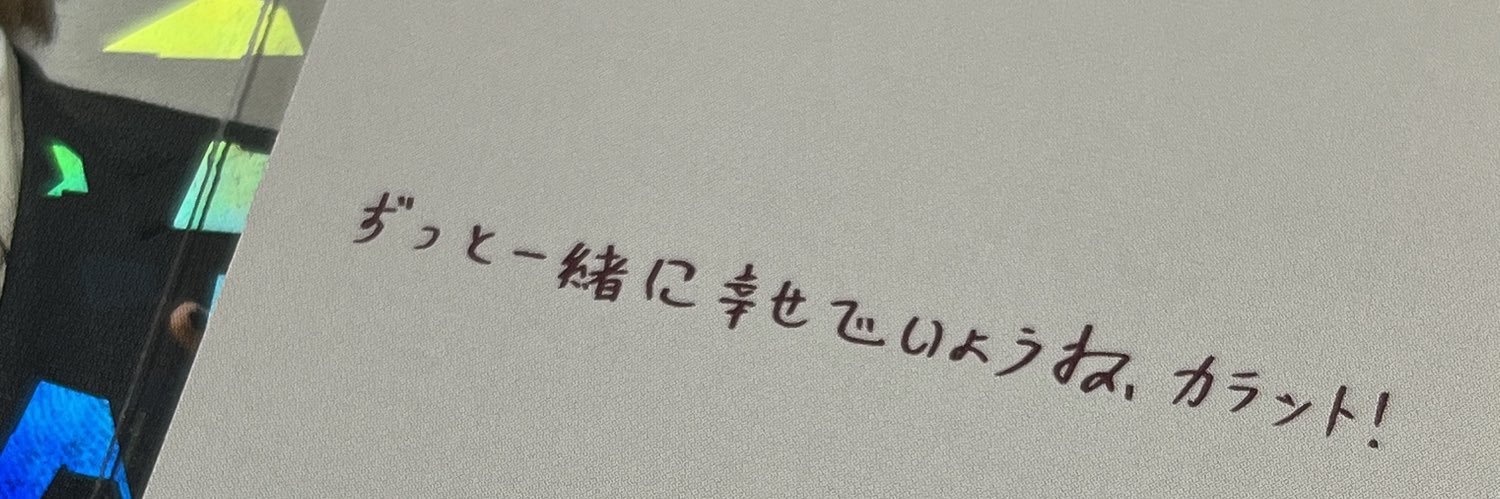 ずっと一緒に幸せでいようね、カラット!